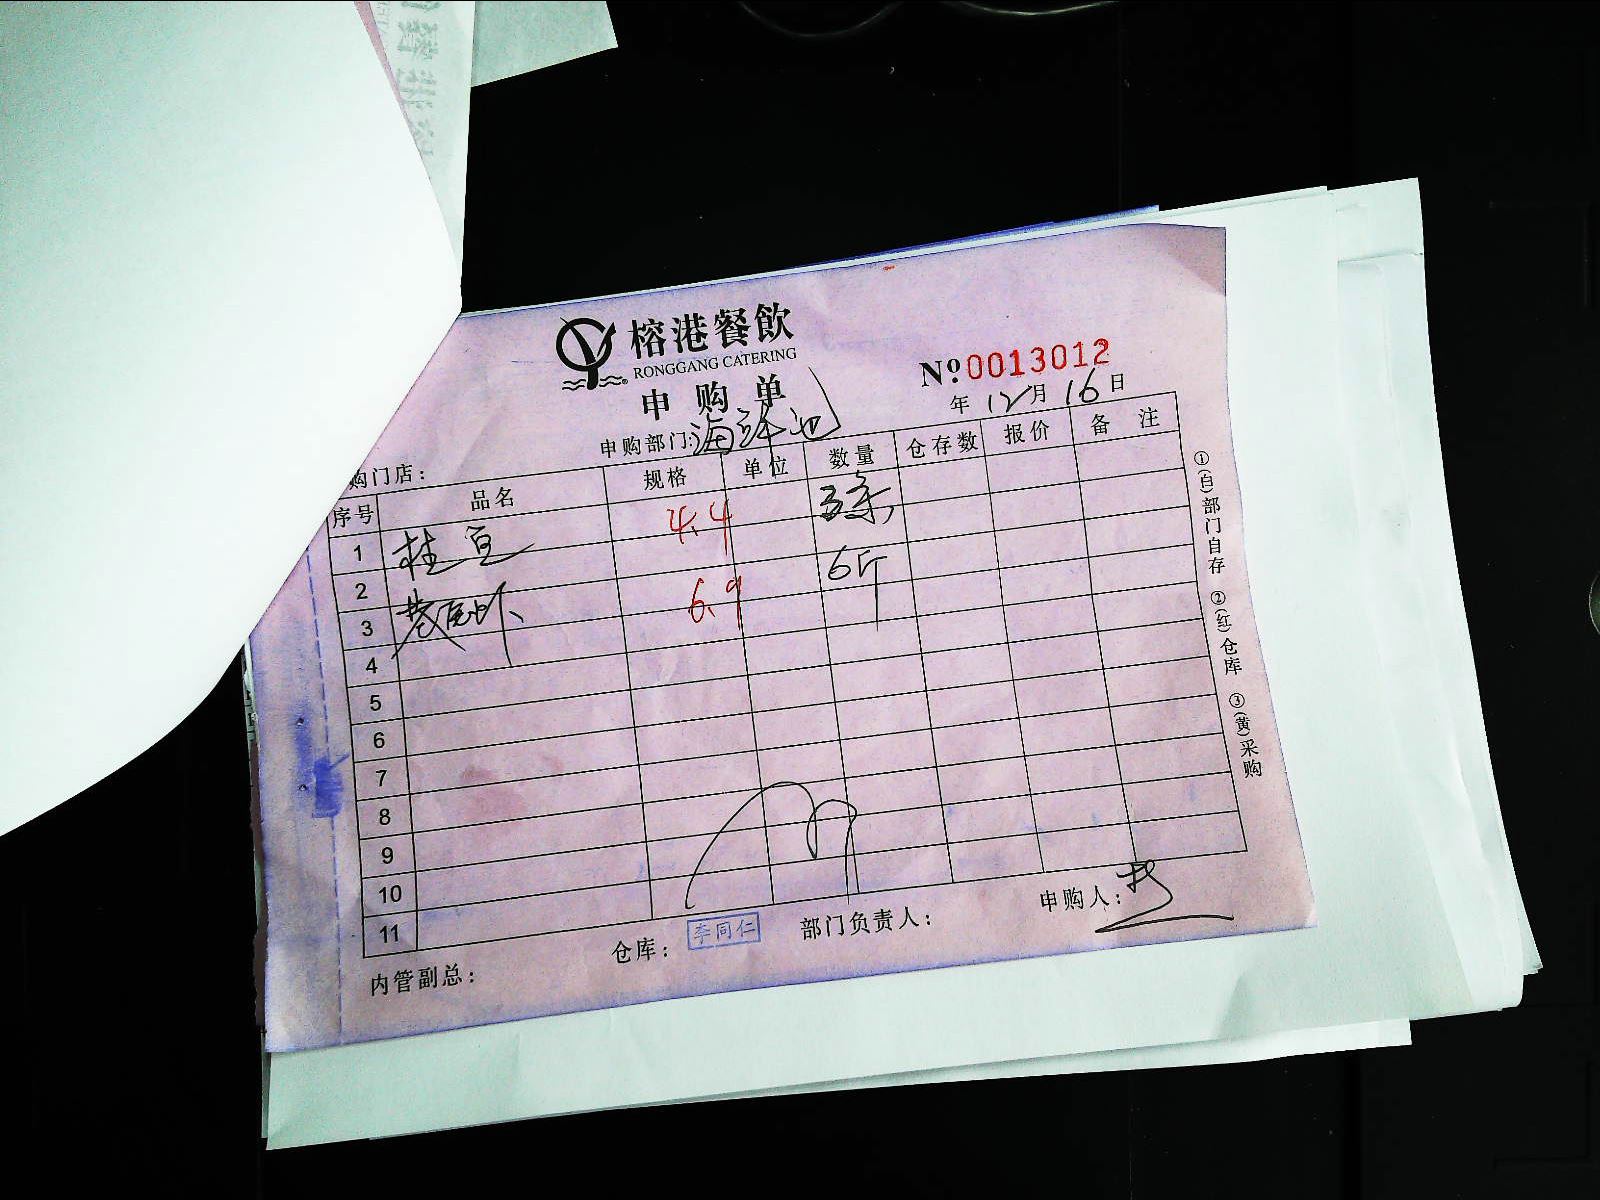 榕港餐飲
RONGGANG CATERING
申购单
№0013012
年12月16日
申购部门:海鲜池
购门店:
序号 品名 规格 单位 数量 仓存数 报价 备注
1 桂鱼 4.4 3条
2 6.9 6斤
3
4
5
6
7
8
9
10
11
内管副总: 仓库: 李同仁 部门负责人: 申购人:
①(白)部门自存 ②(红)仓库 ③(黄)采购